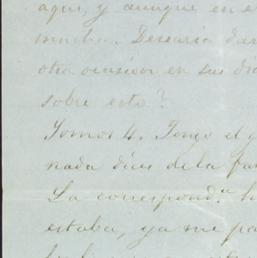 aqui, y aunque en e
mucha. Desearia dar
otra ocasion en sus di
sobre esto?
Somos 4. Tengo el g
nada dices de la fa
La correspond.a h
estaba, ya me pa